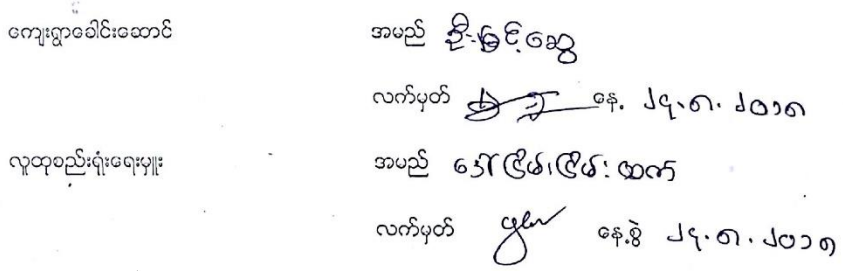 ကျေးရွာခေါင်းဆောင် အမည် ဦးမြင့်ဆွေ
လက်မှတ် နေ့ ၂၄.၈.၂၀၁၈
လူထုစည်းရုံးရေးမှူး အမည် ဒေါ်ငြိမ်းငြိမ်းထက်
လက်မှတ် နေ့စွဲ ၂၄.၈.၂၀၁၈